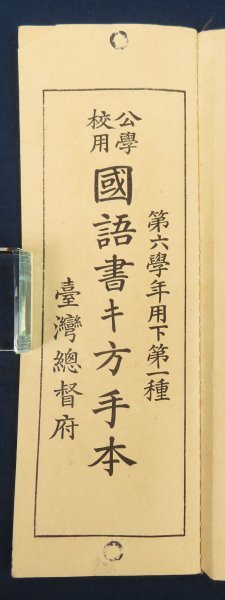 第六學年用下第一種
公學校用
國語書キ方手本
臺灣總督府